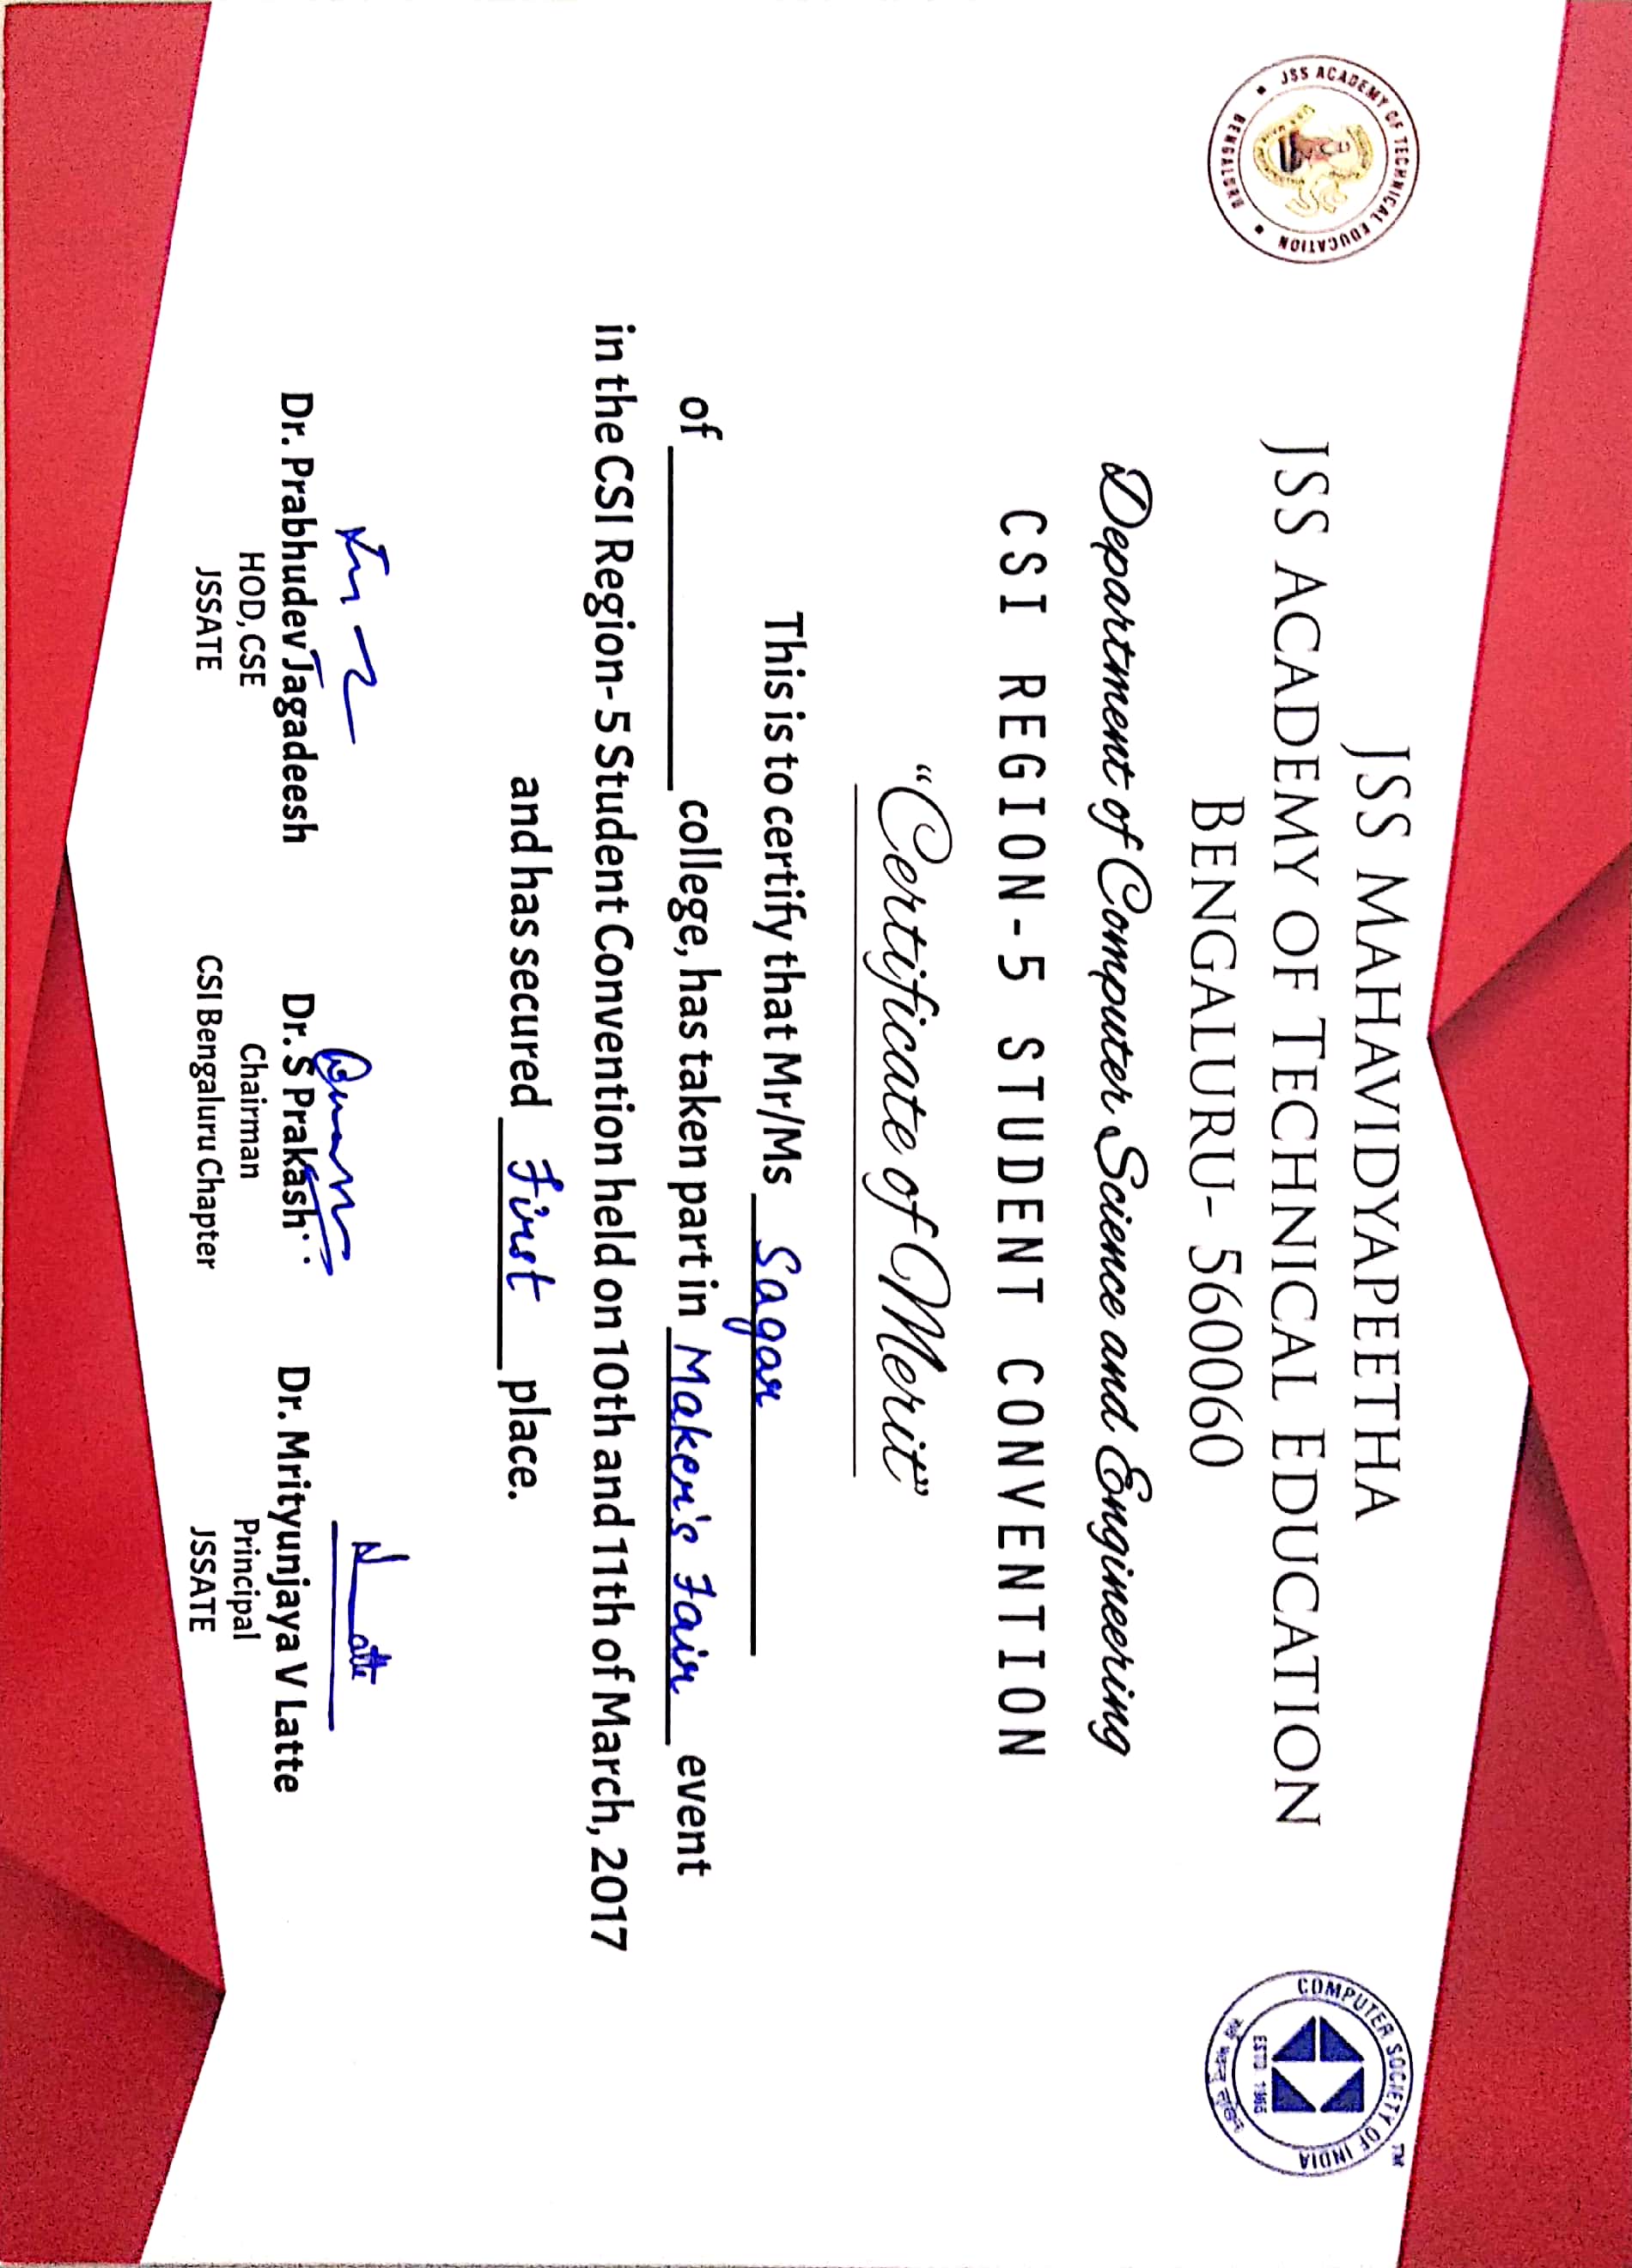 JSS ACADEMY OF TECHNICAL EDUCATION
BENGALURU
COMPUTER SOCIETY OF INDIA
TM
ESTD 1965
JSS MAHAVIDYAPEETHA
JSS ACADEMY OF TECHNICAL EDUCATION
BENGALURU- 560060
Department of Computer Science and Engineering
CSI REGION-5 STUDENT CONVENTION
“Certificate of Merit”
This is to certify that Mr/Ms Sagar
of college, has taken part in Maker's Fair event
in the CSI Region- 5 Student Convention held on 10th and 11th of March, 2017
and has secured First place.
Dr. Prabhudev Jagadeesh
HOD, CSE
JSSATE
Dr. S Prakash
Chairman
CSI Bengaluru Chapter
Dr. Mrityunjaya V Latte
Principal
JSSATE